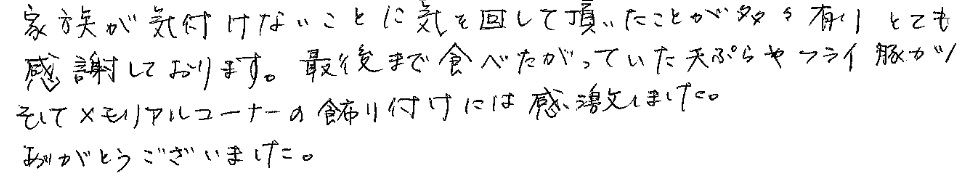 家族が気付けないことに気を回して頂いたことが多々有り とても
感謝しております。最後まで食べたがっていた天ぷらやフライ 豚カツ
そしてメモリアルコーナーの飾り付けには感激しました。
ありがとうございました。